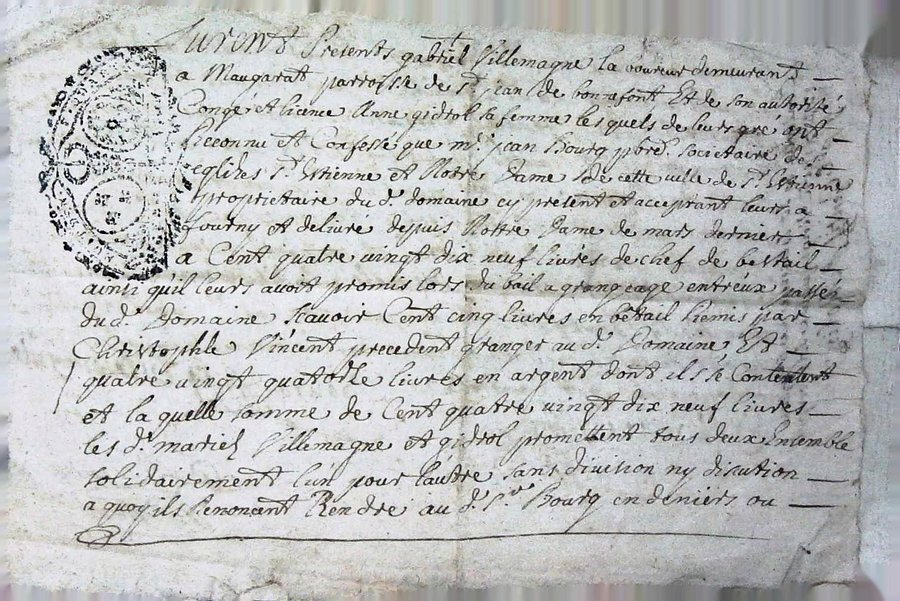 Furent Presents gabriel Villemagne laboureur demeurant
a Maugarat parroisse de St jean de bonnefont Et de son autorité
Congé et licence Anne gidrol sa femme les quels de leurs gré ont
Reconnu et Confessé que mre jean Bourg pbre societaire des
eglizes St Estienne et Nostre Dame de cette ville de St Estienne
propriétaire du d. domaine cy present et acceptant leurs a
fourny et delivré depuis Nostre Dame de mars dernier
a Cent quatre vingt dix neuf livres de chef de bestail
ainsi qu'il leurs avoit promis lors du bail a grangeage entreux passé
du d. Domaine Scavoir Cent cinq livres en betail Remis par
Christophle Vincent precedent granger au d. Domaine Et
quatre vingt quatorze livres en argent dont ils se Contentent
et la quelle somme de Cent quatre vingt dix neuf livres
les d. mariés Villemagne et gidrol promettent tous deux Ensemble
solidairement l'un pour l'autre sans division ny discution
a quoy ils Renoncent Rendre au d. Sr Bourg en deniers ou